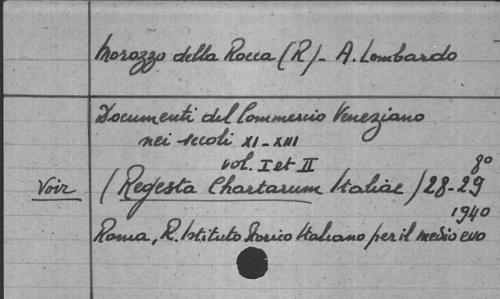 Morozzo della Rocca (R) - A. Lombardo
Documenti del Commercio Veneziano
nei secoli XI - XIII
vol. I et II
8º
Voir (Regesta Chartarum Italiae) 28-29
1940
Roma, R. Istituto Storico Italiano per il medio evo